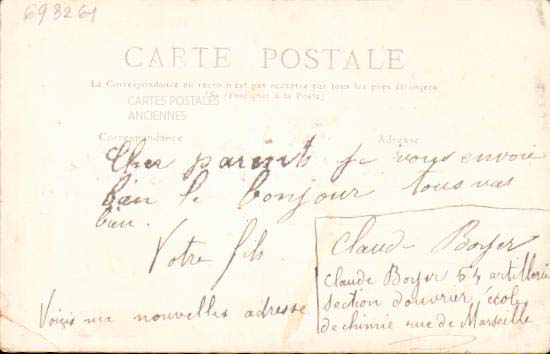 693261
CARTE POSTALE
La Correspondance au recto n'est pas acceptée par tous les pays étrangers
(Se renseigner à la Poste)
CARTES POSTALES
ANCIENNES
Correspondance
Adresse
Cher parents je vous envoie
bien le bonjour tous vas
bien.
Votre fils
Claude Boyer
Claude Boyer 54 artillerie
section douvrier, école
de chimie rue de Marseille
Voiçis ma nouvelles adresse